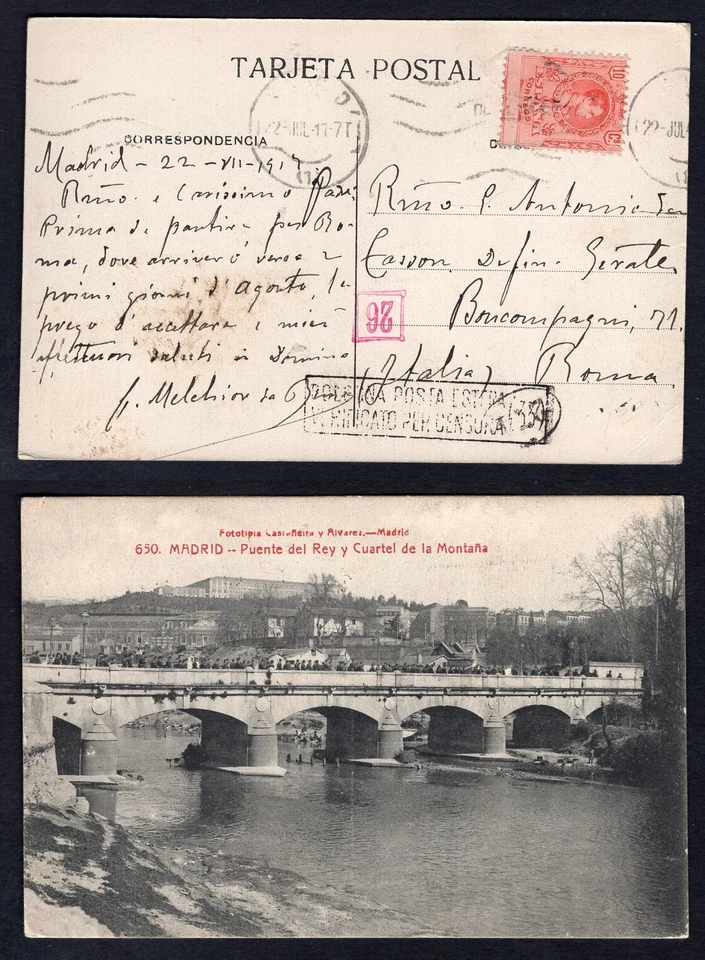 TARJETA POSTAL
22-JUL-17-7T
22-JUL
10
CORREOS
CORRESPONDENCIA
Madrid - 22 - VII - 1917
Rmo. e Carissimo Padre
Prima di partire per Ro-
ma, dove arriverò verso i
primi giorni d'Agosto, la
prego d'accettare i miei
affettuosi saluti in Domino
f. Melchior da
Rmo. P. Antonio da
Casson. Defin. Gerale
Boncompagni, 71.
(Italia) Roma
26
BOLOGNA POSTA ESTERA
VERIFICATO PER CENSURA
Fototipia Castañeira y Alvarez.—Madrid
650. MADRID -- Puente del Rey y Cuartel de la Montaña